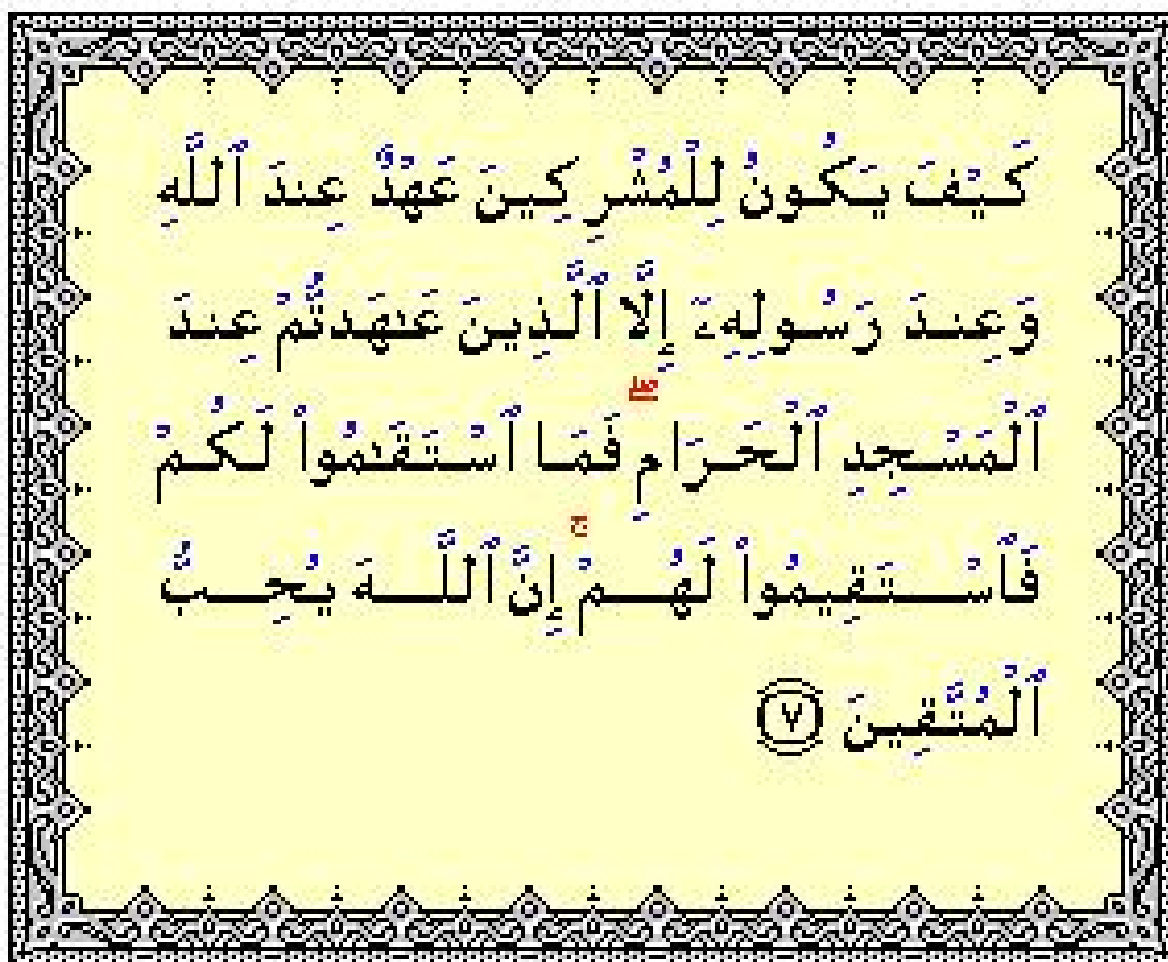 كَيْفَ يَكُونُ لِلْمُشْرِكِينَ عَهْدٌ عِندَ ٱللَّهِ
وَعِندَ رَسُولِهِۦٓ إِلَّا ٱلَّذِينَ عَـٰهَدتُّمْ عِندَ
ٱلْمَسْجِدِ ٱلْحَرَامِ ۖ فَمَا ٱسْتَقَـٰمُوا۟ لَكُمْ
فَٱسْتَقِيمُوا۟ لَهُمْ ۚ إِنَّ ٱللَّهَ يُحِبُّ
ٱلْمُتَّقِينَ ٧